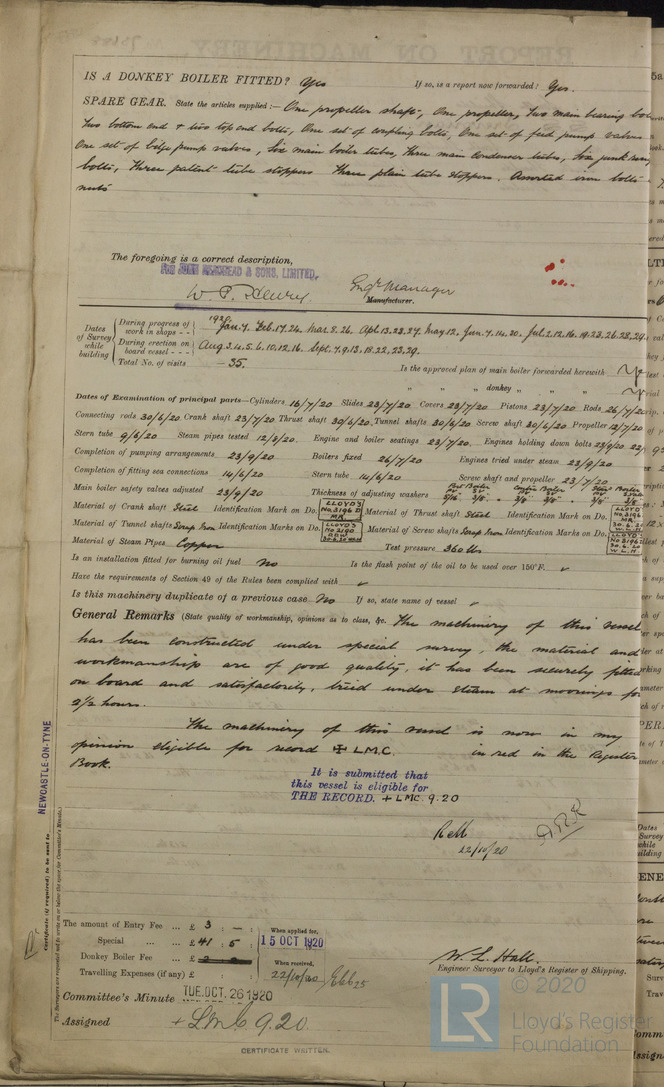 IS A DONKEY BOILER FITTED? Yes If so, is a report now forwarded? Yes.
SPARE GEAR. State the articles supplied:— One propeller shaft, One propeller, Two main bearing
Two bottom end + two top end bolts, One set of coupling bolts, One set of feed pump valves
One set of bilge pump valves, Six main boiler tubes, Three main condenser tubes, Six junk ring
bolts, Three patent tube stoppers Three plain tube stoppers. Assorted iron bolts
nuts
The foregoing is a correct description,
FOR JOHN READHEAD & SONS, LIMITED.
W. P. Henry. Engr. Manager
Manufacturer.
Dates of Survey while building
During progress of work in shops - - 1920 Jan. 7. Feb. 17. 24. Mar. 8. 26. Apl. 13. 23. 27. May 12. Jun. 7. 14. 30. Jul. 2. 12. 16. 19. 23. 26. 28. 29.
During erection on board vessel - - - Aug. 3. 4. 5. 6. 10. 12. 16. Sept. 7. 9. 13. 18. 22. 23. 29.
Total No. of visits 35.
Is the approved plan of main boiler forwarded herewith
" " " donkey " "
Dates of Examination of principal parts—Cylinders 16/7/20 Slides 23/7/20 Covers 23/7/20 Pistons 23/7/20 Rods 26/7/20
Connecting rods 30/6/20 Crank shaft 23/7/20 Thrust shaft 30/6/20 Tunnel shafts 30/6/20 Screw shaft 30/6/20 Propeller 12/7/20
Stern tube 9/6/20 Steam pipes tested 12/8/20 Engine and boiler seatings 23/7/20. Engines holding down bolts 23/9/20
Completion of pumping arrangements 23/9/20 Boilers fixed 26/7/20 Engines tried under steam 23/9/20
Completion of fitting sea connections 14/6/20 Stern tube 14/6/20 Screw shaft and propeller 23/7/20
Main boiler safety valves adjusted 23/9/20 Thickness of adjusting washers
Material of Crank shaft Steel Identification Mark on Do. LLOYD'S No. 3196 Material of Thrust shaft Steel Identification Mark on Do. LLOYD'S No. 3196 30.6.20 W.L.H.
Material of Tunnel shafts Scrap Iron Identification Marks on Do. LLOYD'S No. 3196 Material of Screw shafts Scrap Iron Identification Marks on Do. LLOYD'S No. 3196 30.6.20 W.L.H.
Material of Steam Pipes Copper Test pressure 360 lbs
Is an installation fitted for burning oil fuel No Is the flash point of the oil to be used over 150°F.
Have the requirements of Section 49 of the Rules been complied with
Is this machinery duplicate of a previous case No If so, state name of vessel
General Remarks (State quality of workmanship, opinions as to class, &c. The machinery of this vessel
has been constructed under special survey, the material and
workmanship are of good quality, it has been securely fitted
on board and satisfactorily tried under steam at moorings for
2½ hours.
The machinery of this vessel is now in my
opinion eligible for record ✠ L.M.C. in red in the Register
Book.
It is submitted that
this vessel is eligible for
THE RECORD. + LMC. 9.20
22/10/20
NEWCASTLE-ON-TYNE
Certificate (if required) to be sent to
The amount of Entry Fee ... £ 3 : - :
Special ... ... £ 41 : 5 :
Donkey Boiler Fee ... £
Travelling Expenses (if any) £
When applied for,
15 OCT 1920
When received,
22/10/20
W. L. Hall.
Engineer Surveyor to Lloyd's Register of Shipping.
Committee's Minute TUE. OCT. 26 1920
Assigned + LMC 9.20
CERTIFICATE WRITTEN.
© 2020
LR
Lloyd's Register
Foundation